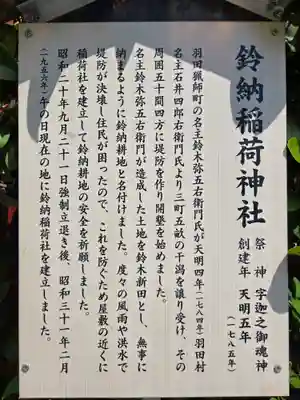 鈴納稲荷神社
祭　神　宇迦之御魂神
創建年　天明五年
（一七八五年）
羽田猟師町の名主鈴木弥五右衛門氏が天明四年（一七八四年）羽田村
名主石井四郎右衛門氏より三町五畝の干潟を譲り受け、その
周囲五十間四方に堤防を作り開墾を始めました。
名主鈴木弥五右衛門が造成した土地を鈴木新田とし、無事に
納まるように鈴納耕地と名付けました。度々の風雨や洪水で
堤防が決壊し住民が困ったので、これを防ぐため屋敷の近くに
稲荷社を建立して鈴納耕地の安全を祈願しました。
昭和二十年九月二十一日強制立退き後、昭和三十一年二月
（一九五六年）午の日現在の地に鈴納稲荷社を建立しました。